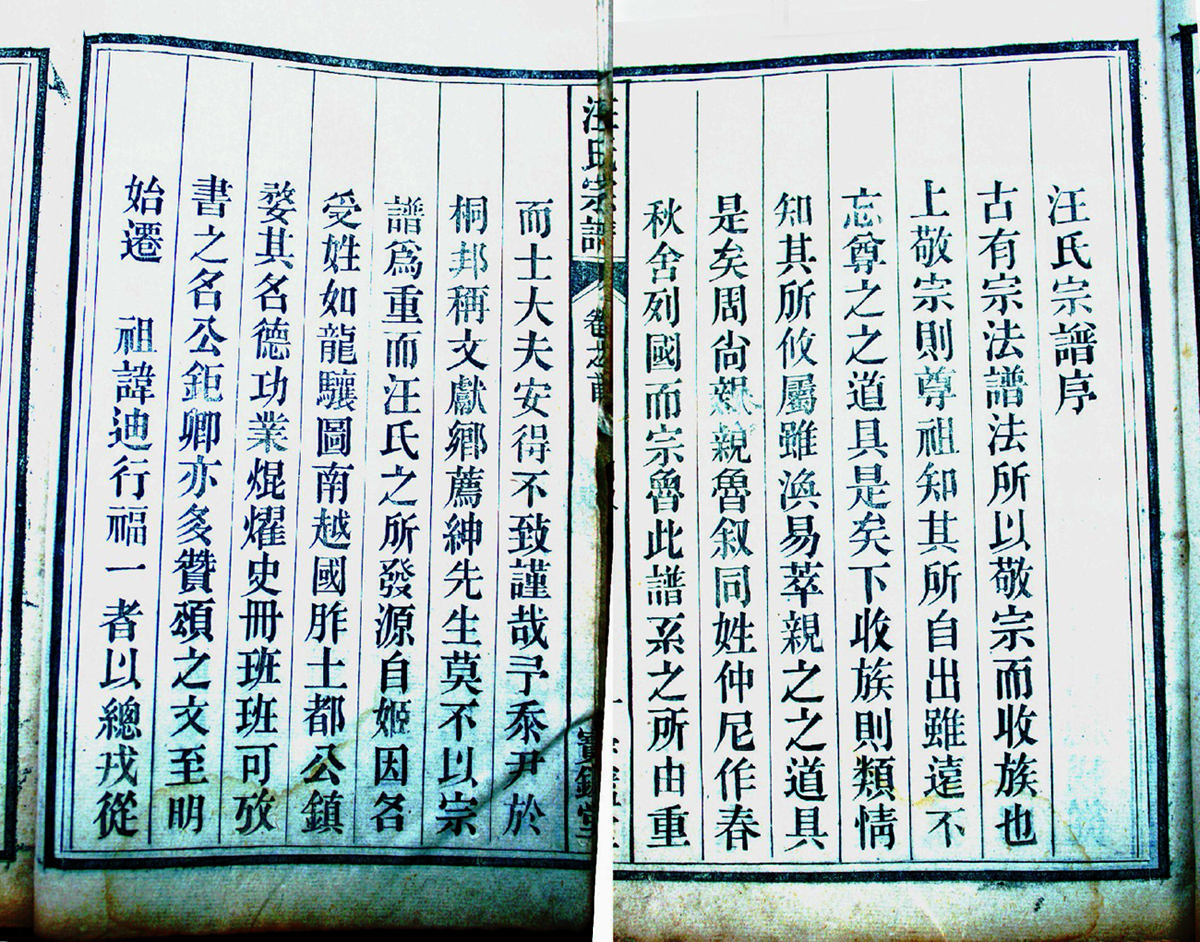 汪氏宗譜序
古有宗法譜法所以敬宗而收族也
上敬宗則尊祖知其所自出雖遠不
忘尊之之道具是矣下收族則類情
知其所攸屬雖渙易萃親之之道具
是矣周尚親親魯叙同姓仲尼作春
秋舍列國而宗魯此譜系之所由重
汪氏宗譜
卷之首
寶鑑堂
而士大夫安得不致謹哉予忝尹於
桐邦稱文獻鄉薦紳先生莫不以宗
譜爲重而汪氏之所發源自姬因名
受姓如龍驤圖南越國胙土都公鎮
婺其名德功業焜燿史冊班班可攷
書之名公鉅卿亦多贊頌之文至明
始遷 祖諱迪行福一者以總戎從